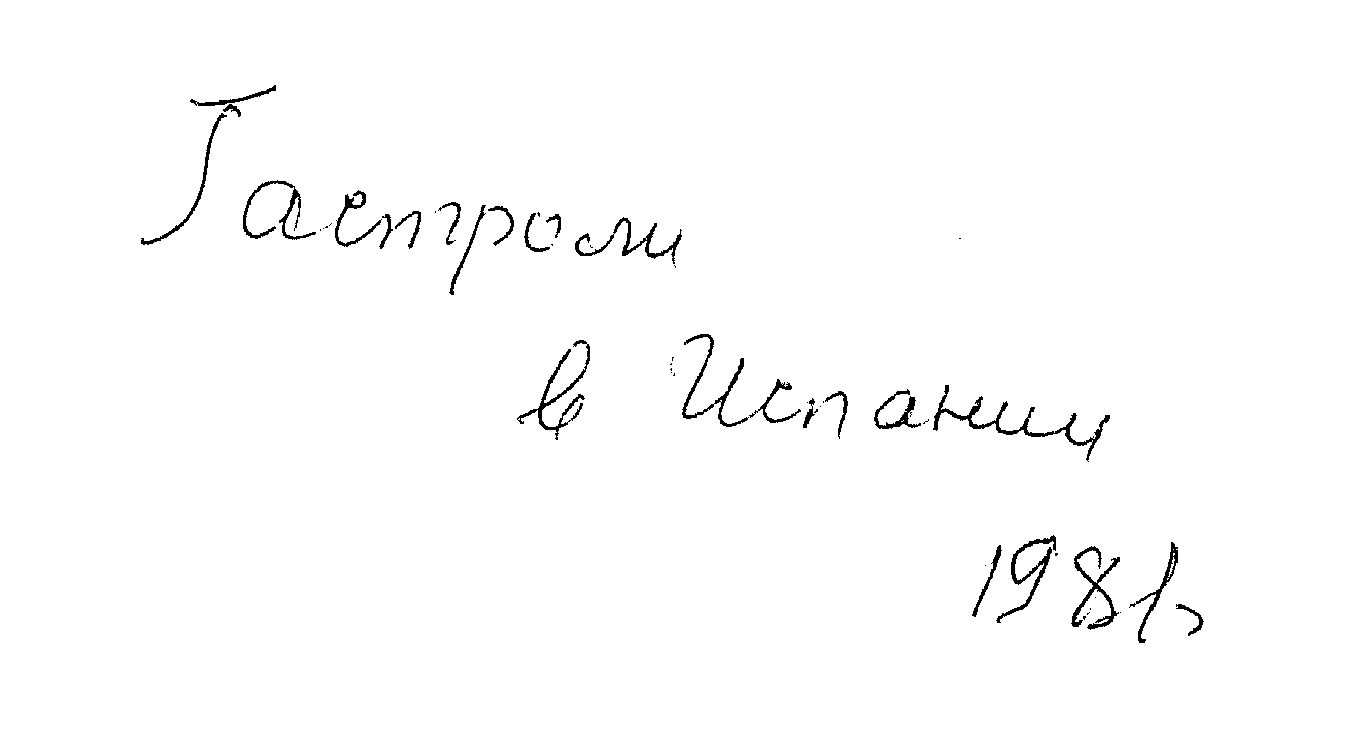 Гастроли
в Испании
1981г.